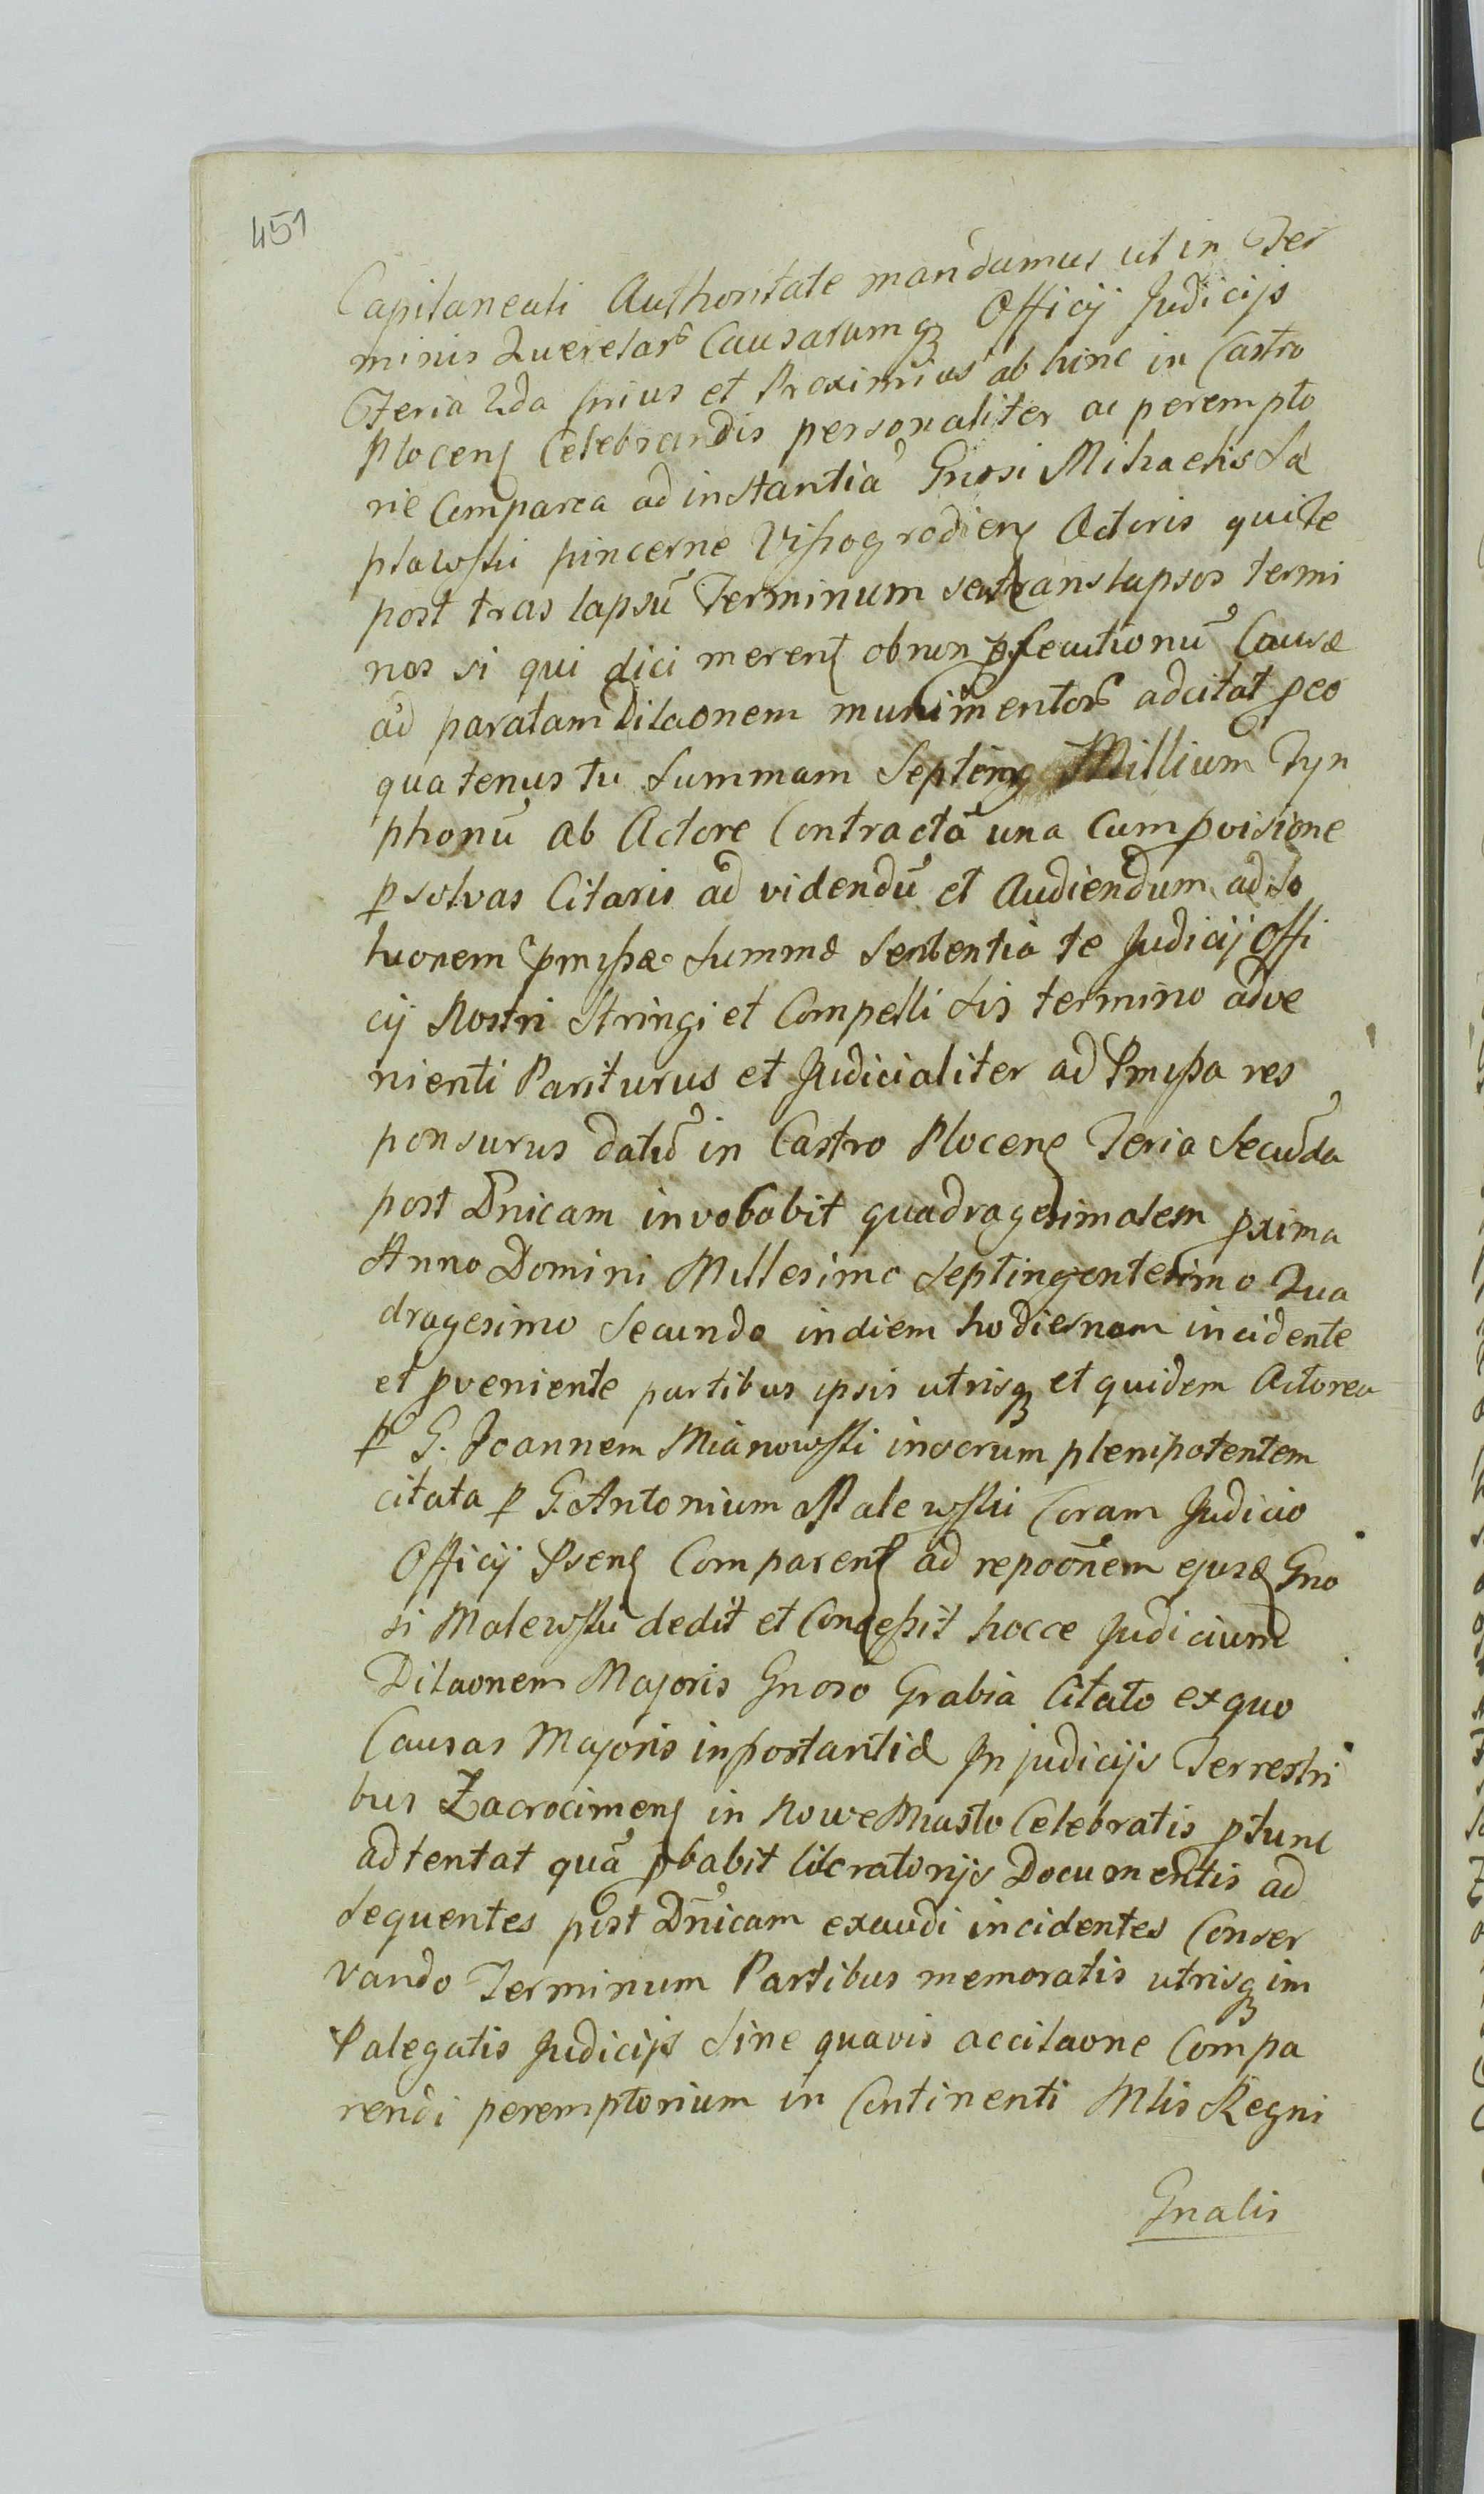 451
Capitaneali Authoritate mandamus ut in Ter
minis Querelarũ Causarumqȝ Officij Judicijs
Feria 2da prius et Proximius ab hinc in Castro
Plocenș Celebrandis personaliter ac perempto
rie Compareα ad instantiã Gnosi Mihaelis La
ptawski pincerne Visogrodienș Actoris qui Te
post tras lapsũ Terminum seu translapsos termi
nos si qui dici merenț ob non psecutionũ Causæ
ad paratam Dilaonem munimentorũ adcitat peo
quatenus tu Summam Septing Millium Tyn
phonũ ab Actore Contractã una Cum pvisione
p solvas Citaris ad videndũ et Audiendum ad So
luonem pmissæ Summæ Sententia te Judicij Offi
cij Nostri Stringi et Compelli Sis termino adve
nienti Pariturus et Judicialiter ad Pmissa res
ponsurus datũ in Castro Plocenș Feria Secũda
post Dnicam invocabit quadragesimalem pxima
Anno Domini Millesimo Septingentesimo Qua
dragesimo Secundo indiem hodiernam incidente
et pveniente partibus ipsis utrisqȝ et quidem Actorea
p G. Joannem Mianowski insorum plenipotentem
citata p G. Antonium Malewski Coram Judicio
Officij Psenș Comparenț ad repoõnem ejusđ Gno
si Malewski dedit et Concessit hocce Judicium
Dilaonem Majoris Gnoso Grabia Citato exquo
Causas Majoris inportantiæ In judicijs Terrestri
bus Zacrocimenș in Nowe Miasto Celebratis ptunc
adtentat quã pbabit literatorijs Documentis ad
sequentes post Dnicam exaudi incidentes Conser
vando Terminum Partibus memoratis utrisqȝ im
Palegatis Judicijs Sine quavis accitaone Compa
rendi peremptorium in Continenti Mlis Regni
Gnalis